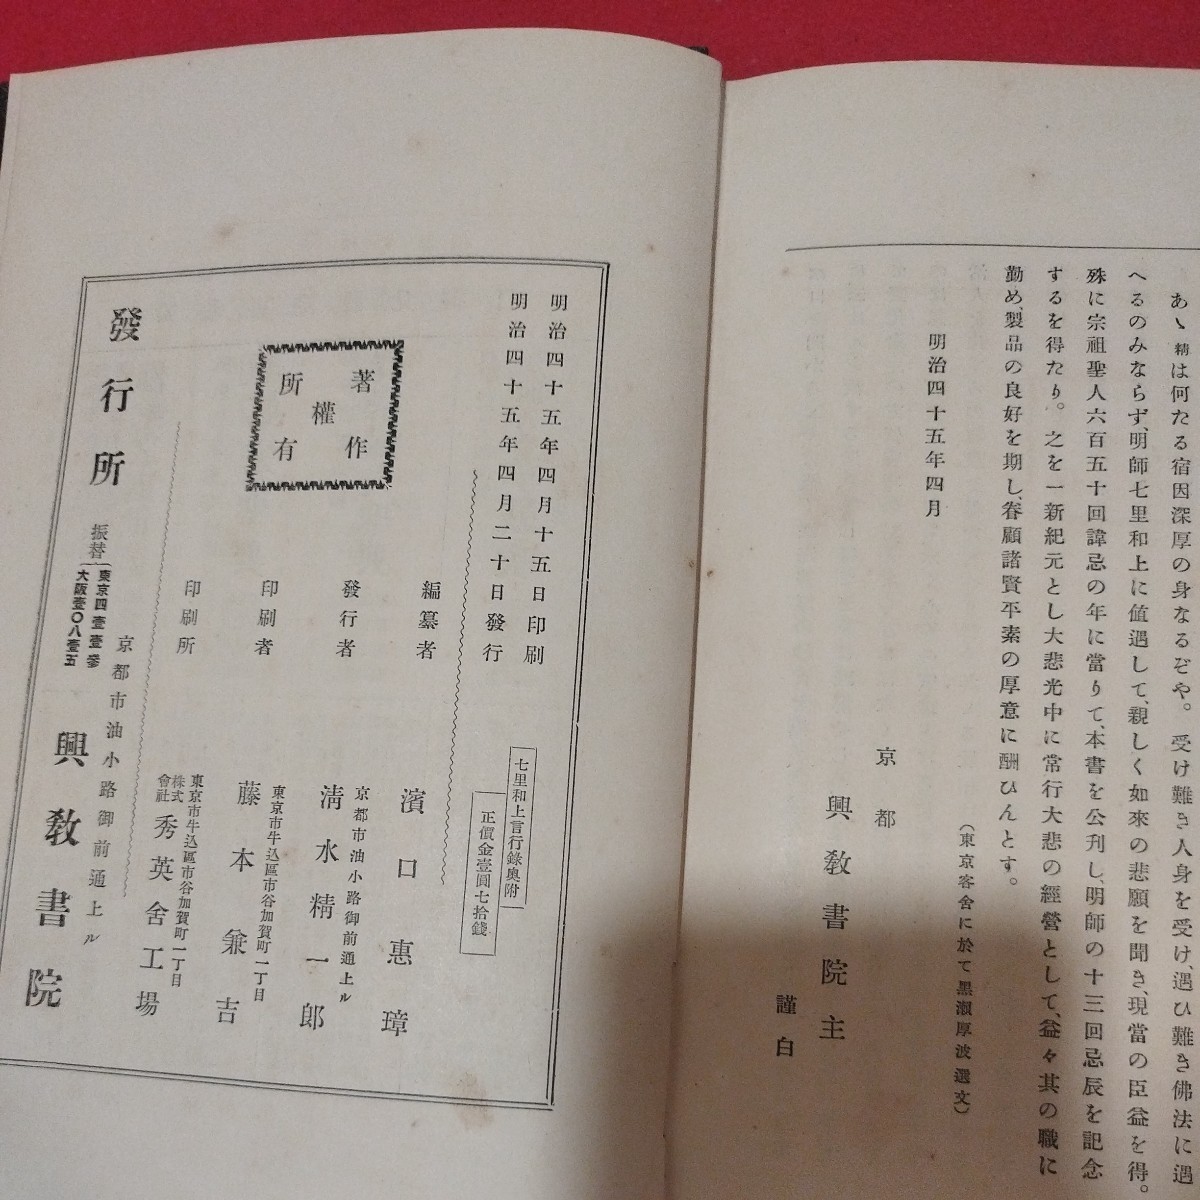 あゝ精は何たる宿因深厚の身なるぞや。受け難き人身を受け、遇ひ難き佛法に遇
へるのみならず、明師七里和上に値遇して、親しく如來の悲願を聞き、現當の巨益を得。
殊に宗祖聖人六百五十回諱忌の年に當りて、本書を公刋し、明師の十三回忌辰を記念
するを得たり。之を一新紀元とし大悲光中に常行大悲の經營として、益々其の職に
勤め、製品の良好を期し、眷顧諸賢平素の厚意に酬ひんとす。
（東京客舍に於て黒瀬厚波選文）
明治四十五年四月
京都
興敎書院主
謹白
明治四十五年四月十五日印刷
明治四十五年四月二十日發行
七里和上言行錄奧附
正價金壹圓七拾錢
著作權所有
編纂者
濱口惠璋
發行者
京都市油小路御前通上ル
淸水精一郎
印刷者
東京市牛込區市谷加賀町一丁目
藤本兼吉
印刷所
東京市牛込區市谷加賀町一丁目
株式會社秀英舍工場
京都市油小路御前通上ル
發行所
振替
東京四壹壹參
大阪壹〇八壹五
興敎書院